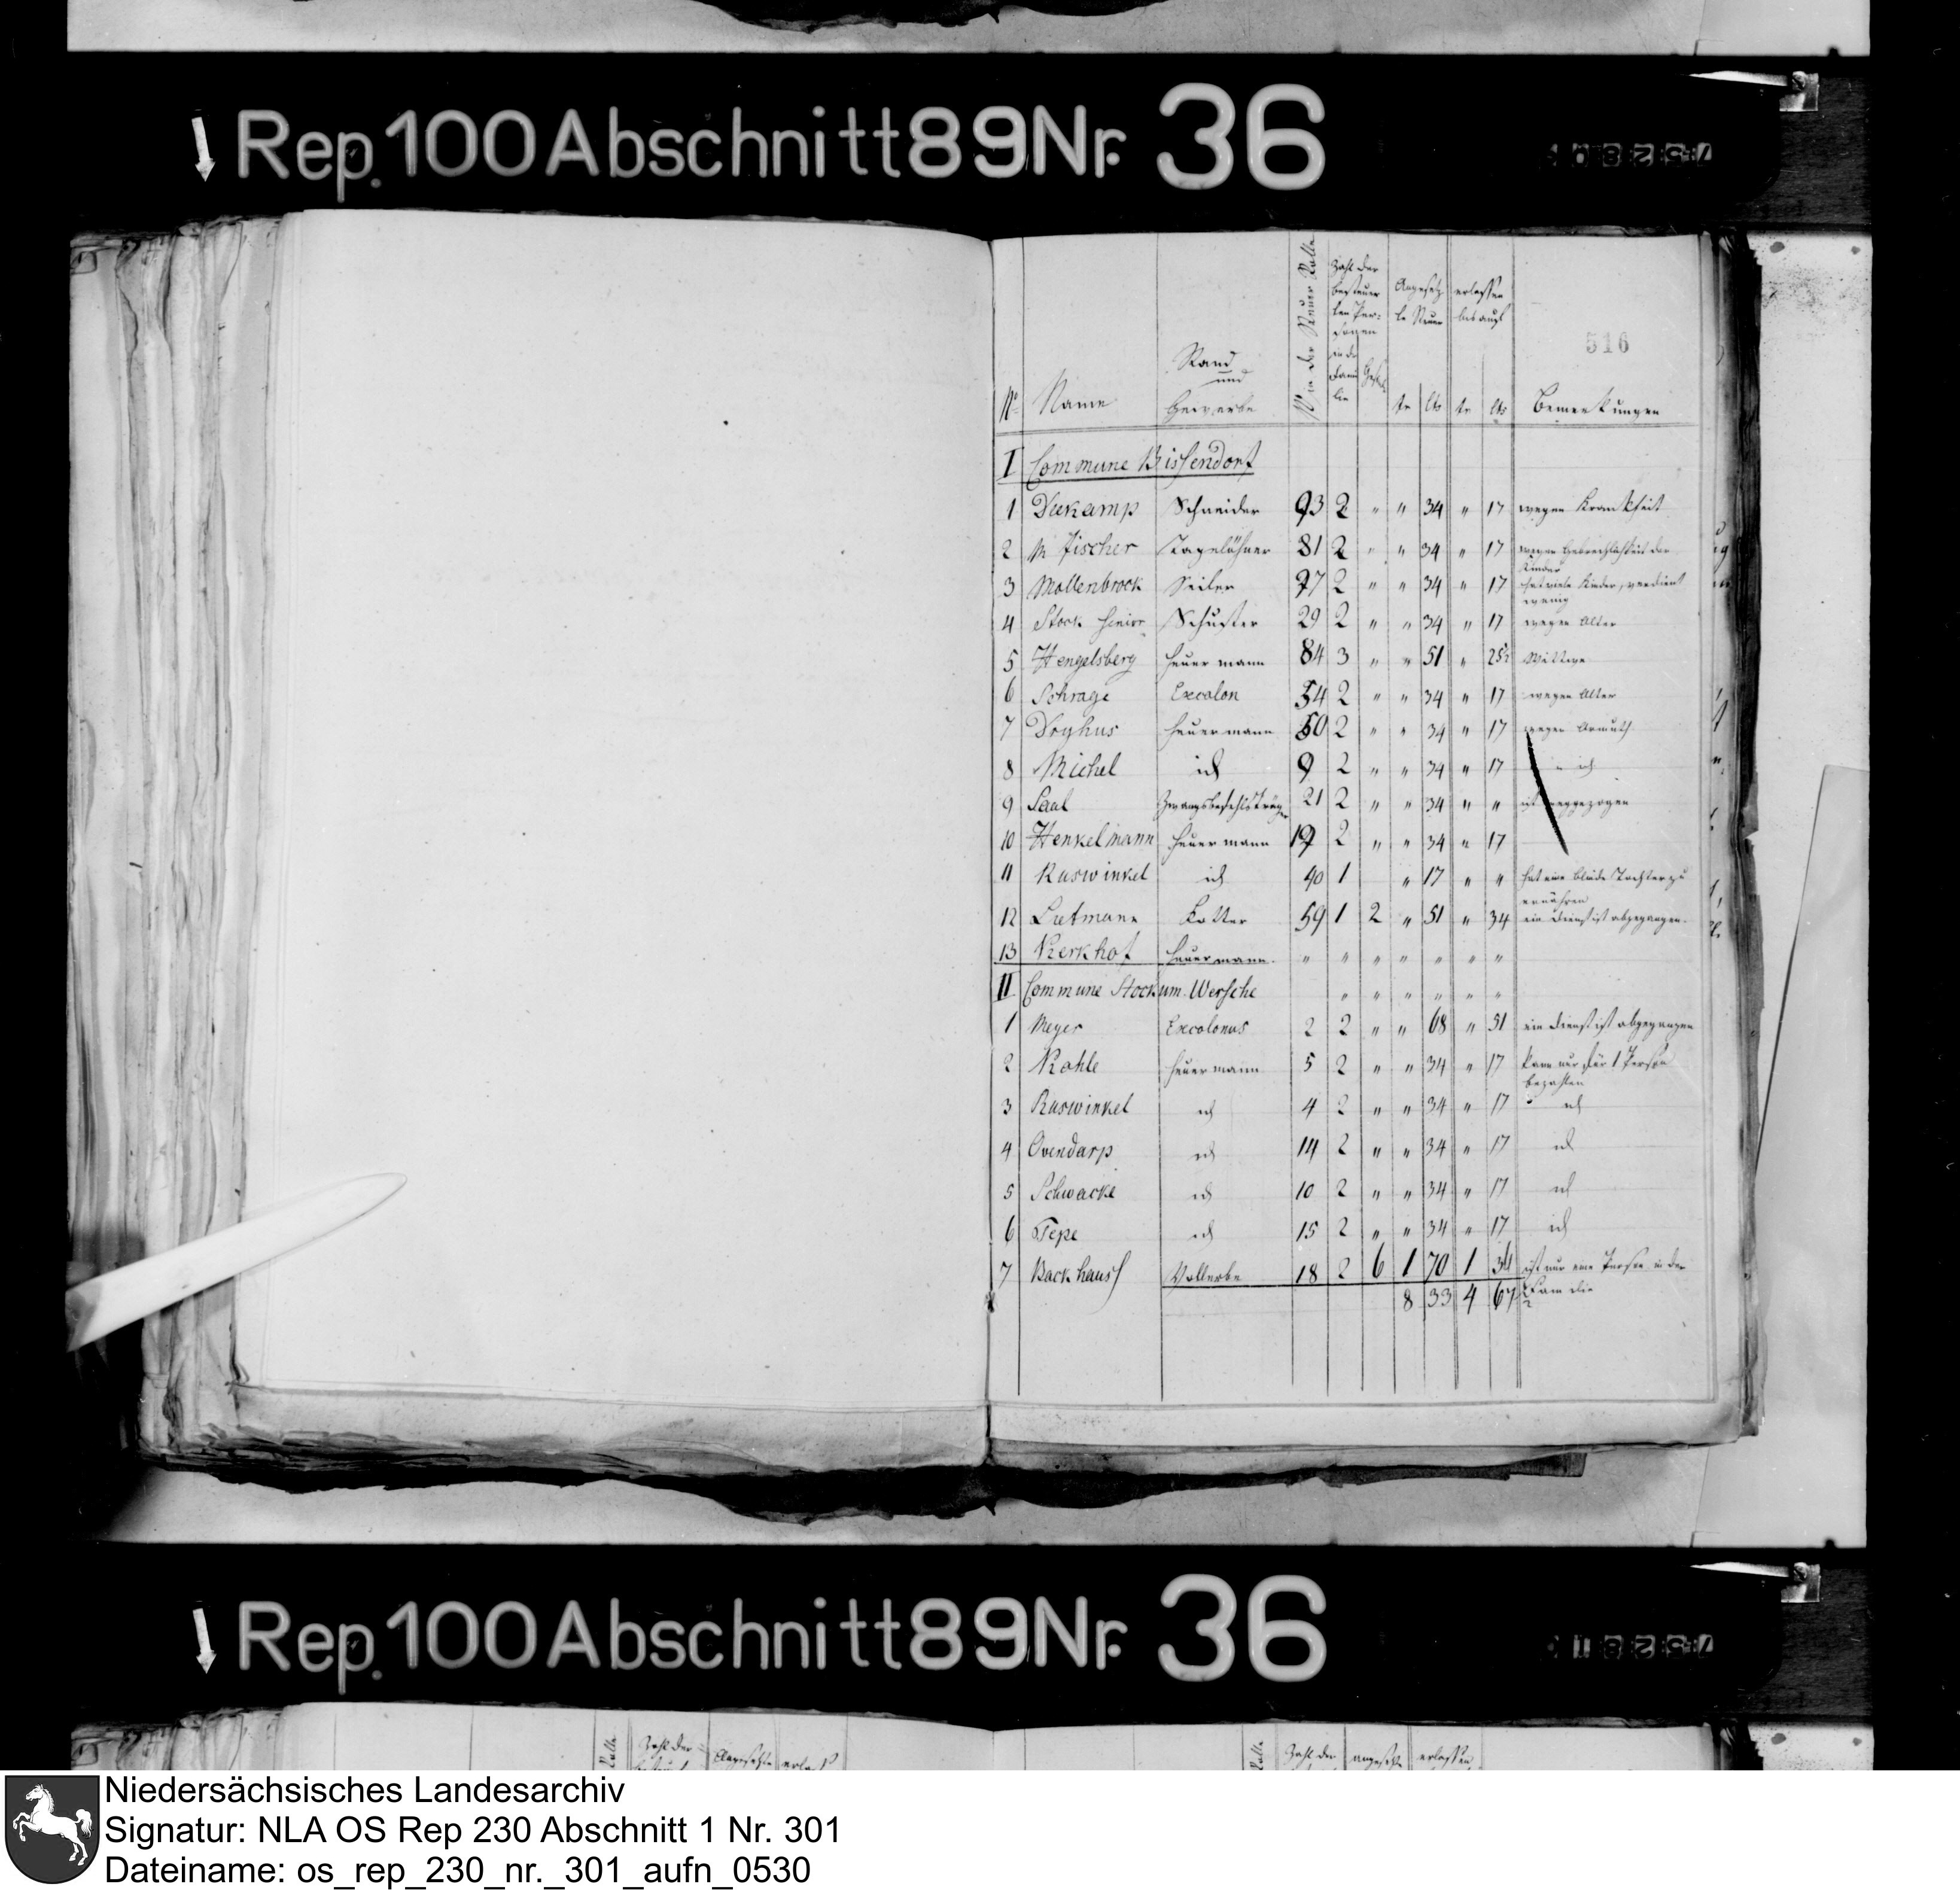 Rep. 100 Abschnitt 89 Nr. 36
516
No Name Stand und Gewerbe No in der Steuer Rolle Zahl der besteuerten Personen in der Familie Angesetzte Steuer erlassen bis auf Bemerkungen
I Commune Bissendorf
1 Schneider 93 2 " " 34 " 17 wegen Krankheit
2 M Fischer Tagelöhner 81 2 " " 34 " 17 wegen Gebrechlichkeit der Kinder
3 Mollenbrock Seiler 97 2 " " 34 " 17 hat viele Kinder, verdient wenig
4 Stock Senior Schuster 29 2 " " 34 " 17 wegen Alter
5 Hengelsberg Heuermann 84 3 " " 51 " 25½ Wittwe
6 Schrage Excolon 54 2 " " 34 " 17 wegen Alter
7 Heuermann 50 2 " " 34 " 17 wegen Armuth
8 Michel id 9 2 " " 34 " 17 " id
9 Saul Zwangsbefehlsträger 21 2 " " 34 " " ist weggezogen
10 Henkelmann Heuermann 19 2 " " 34 " 17
11 Ruswinkel id 40 1 " 17 " " hat eine blinde Tochter zu ernähren
12 Lutmann Kotter 59 1 2 " 51 " 34 ein Dienst ist abgegangen.
13 Kerkhof Heuermann. " " " " " " "
II Commune Stockum. Wersche " " " " " "
1 Meyer Excolonus 2 2 " " 68 " 51 ein Dienst ist abgegangen
2 Kahle Heuermann 5 2 " " 34 " 17 kann nur für 1 Person bezahlen
3 Ruswinkel id 4 2 " " 34 " 17 id
4 Ovendarp id 14 2 " " 34 " 17 id
5 Schwacke id 10 2 " " 34 " 17 id
6 Tepe id 15 2 " " 34 " 17 id
7 Backhaus Vollerbe 18 2 6 1 70 1 34 ist nur eine Person in der Familie
8 33 4 67½
Rep. 100 Abschnitt 89 Nr. 36
Zahl der Angesetzte erlass Zahl der angesetzte erlassen
Niedersächsisches Landesarchiv
Signatur: NLA OS Rep 230 Abschnitt 1 Nr. 301
Dateiname: os_rep_230_nr._301_aufn_0530